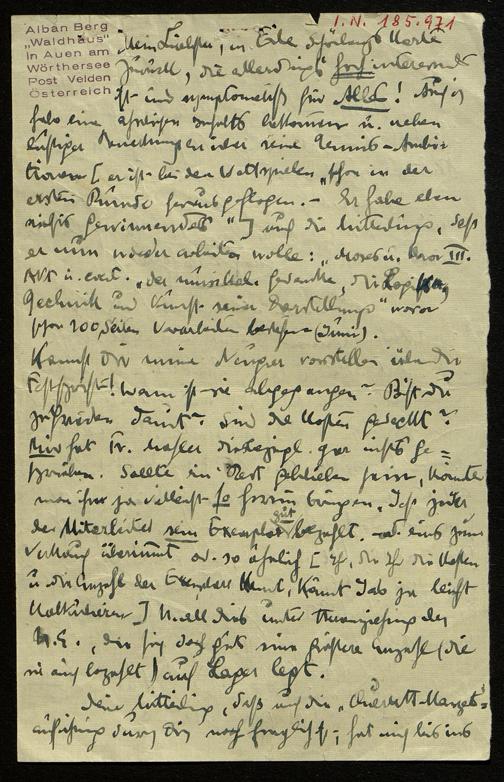 Alban Berg
„Waldhaus“
in Auen am
Wörthersee
Post Velden
Österreich
I.N. 185.971
Mein Liebster, in Eile Schönbergs Karte
zurück, die allerdings sehr interessant
ist und symptomatisch für Alles! Auch ich
habe eine ähnlichen Inhalts bekommen u. neben
lustigen Bemerkungen über seine Tennis-Ambi-
tionen [er ist bei den Wettspielen „schon in der
ersten Runde herausgeflogen. – Er habe eben
nichts Gewinnendes“] auch die Mitteilung, daß
er nun wieder arbeiten wolle: „Moses u. Aron III.
Akt u. event. „der musikal. Gedanke, die Logik,
Technik und Kunst seiner Darstellung“ wovon
schon 100 Seiten Vorarbeiten bestehen (Juni).
Kannst Dir meine Neugier vorstellen über die
Festschrift! Wann ist sie abgegangen? Bist du
zufrieden damit? Sind die Kosten gedeckt?
Mir hat Fr. Mahler diesbezügl. gar nichts ge-
schrieben. Sollte ein Rest geblieben sein, könnte
man ihn ja vielleicht so herein bringen, daß jeder
der Mitarbeiter sein Exemplar bezahlt od. eins zum
Verkauf übernimmt od. so ähnlich [Ihr, die Ihr die Kosten
u. die Anzahl der Exemplare kennt, könnt das ja leicht
kalkulieren] All dies unter Heranziehung der
U.E., die sich doch gut eine größere Anzahl (die
sie auch bezahlt) auf Lager legt.
Deine Mitteilung, daß auch die „Quartett-
aufführung durch Dich noch fraglich ist, hat mich bis ins